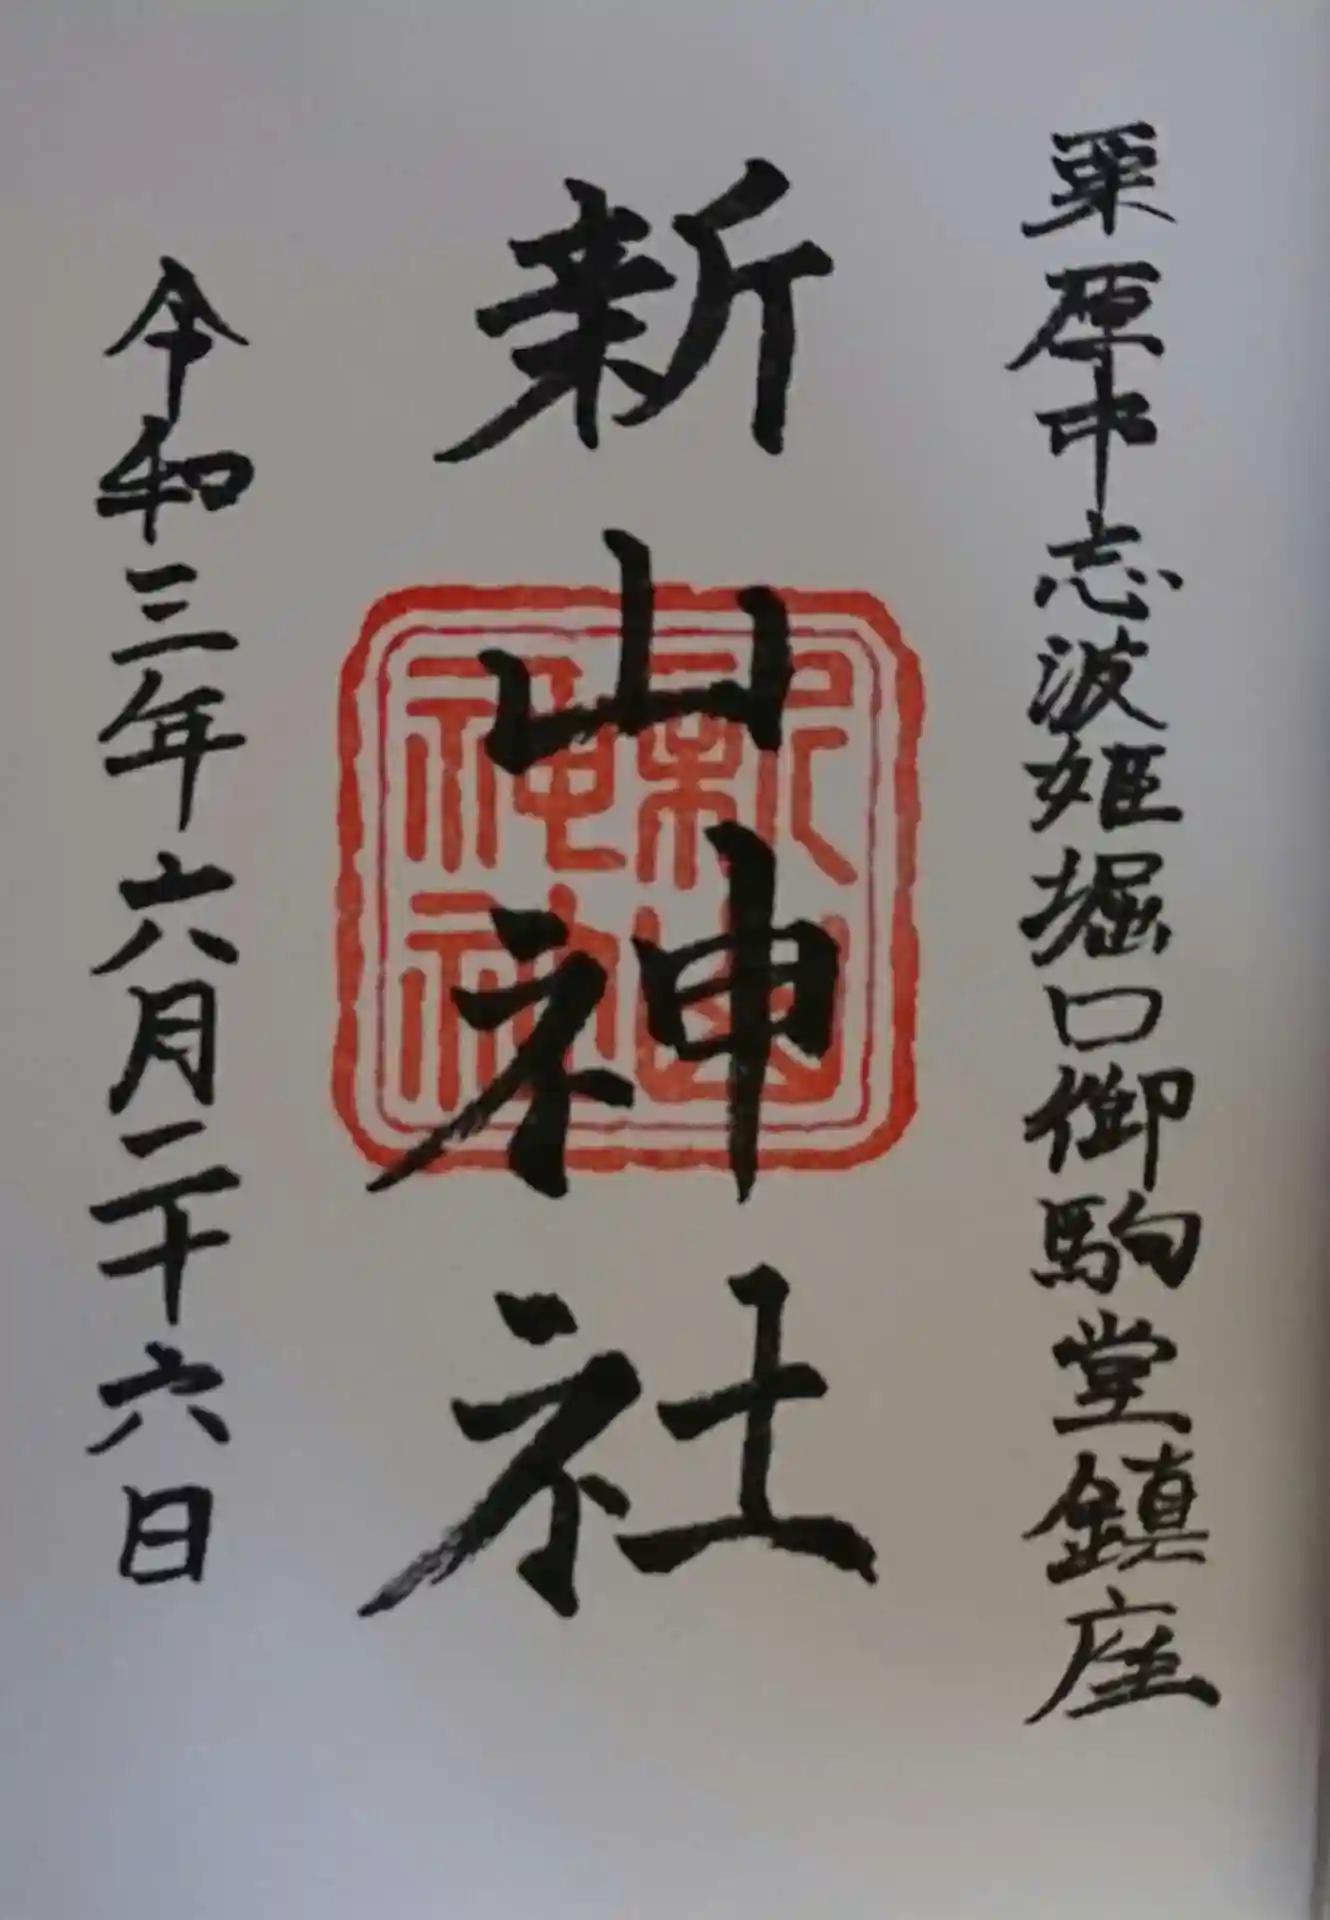 栗原市志波姫堀口御駒堂鎮座
新山神社
新山
神社
令和三年六月二十六日